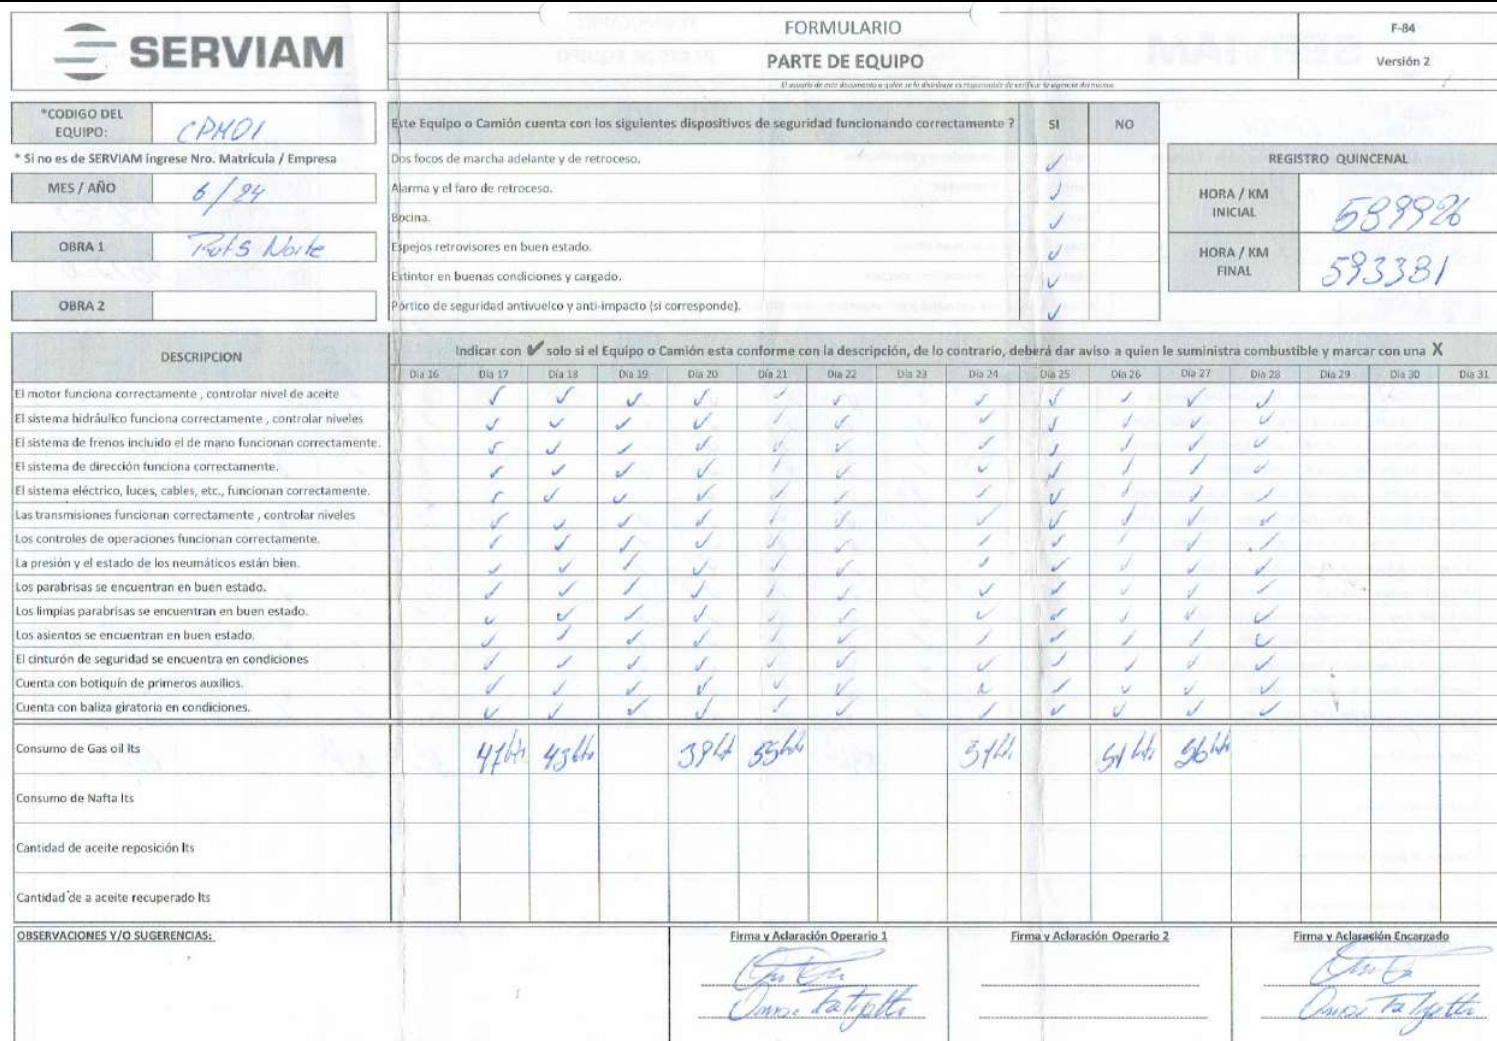 SERVIAM
FORMULARIO
PARTE DE EQUIPO
El usuario de este documento o quien se lo distribuye es responsable de verificar la vigencia del mismo
F-84
Versión 2
*CODIGO DEL EQUIPO: CPM01
* Si no es de SERVIAM ingrese Nro. Matrícula / Empresa
MES / AÑO 6/24
OBRA 1 Norte
OBRA 2
Este Equipo o Camión cuenta con los siguientes dispositivos de seguridad funcionando correctamente ? SI NO
Dos focos de marcha adelante y de retroceso. ✓
Alarma y el faro de retroceso. ✓
Bocina. ✓
Espejos retrovisores en buen estado. ✓
Extintor en buenas condiciones y cargado. ✓
Pórtico de seguridad antivuelco y anti-impacto (si corresponde). ✓
REGISTRO QUINCENAL
HORA / KM INICIAL 589926
HORA / KM FINAL 593381
DESCRIPCION
Indicar con ✔ solo si el Equipo o Camión esta conforme con la descripción, de lo contrario, deberá dar aviso a quien le suministra combustible y marcar con una X
Día 16 Día 17 Día 18 Día 19 Día 20 Día 21 Día 22 Día 23 Día 24 Día 25 Día 26 Día 27 Día 28 Día 29 Día 30 Día 31
El motor funciona correctamente , controlar nivel de aceite ✓ ✓ ✓ ✓ ✓ ✓ ✓ ✓ ✓ ✓ ✓
El sistema hidráulico funciona correctamente , controlar niveles ✓ ✓ ✓ ✓ ✓ ✓ ✓ ✓ ✓ ✓ ✓
El sistema de frenos incluido el de mano funcionan correctamente. ✓ ✓ ✓ ✓ ✓ ✓ ✓ ✓ ✓ ✓ ✓
El sistema de dirección funciona correctamente. ✓ ✓ ✓ ✓ ✓ ✓ ✓ ✓ ✓ ✓ ✓
El sistema eléctrico, luces, cables, etc., funcionan correctamente. ✓ ✓ ✓ ✓ ✓ ✓ ✓ ✓ ✓ ✓ ✓
Las transmisiones funcionan correctamente , controlar niveles ✓ ✓ ✓ ✓ ✓ ✓ ✓ ✓ ✓ ✓ ✓
Los controles de operaciones funcionan correctamente. ✓ ✓ ✓ ✓ ✓ ✓ ✓ ✓ ✓ ✓ ✓
La presión y el estado de los neumáticos están bien. ✓ ✓ ✓ ✓ ✓ ✓ ✓ ✓ ✓ ✓ ✓
Los parabrisas se encuentran en buen estado. ✓ ✓ ✓ ✓ ✓ ✓ ✓ ✓ ✓ ✓ ✓
Los limpias parabrisas se encuentran en buen estado. ✓ ✓ ✓ ✓ ✓ ✓ ✓ ✓ ✓ ✓ ✓
Los asientos se encuentran en buen estado. ✓ ✓ ✓ ✓ ✓ ✓ ✓ ✓ ✓ ✓ ✓
El cinturón de seguridad se encuentra en condiciones ✓ ✓ ✓ ✓ ✓ ✓ ✓ ✓ ✓ ✓ ✓
Cuenta con botiquín de primeros auxilios. ✓ ✓ ✓ ✓ ✓ ✓ ✓ ✓ ✓ ✓ ✓
Cuenta con baliza giratoria en condiciones. ✓ ✓ ✓ ✓ ✓ ✓ ✓ ✓ ✓ ✓ ✓
Consumo de Gas oil lts
Consumo de Nafta lts
Cantidad de aceite reposición lts
Cantidad de a aceite recuperado lts
OBSERVACIONES Y/O SUGERENCIAS:
Firma y Aclaración Operario 1
Firma y Aclaración Operario 2
Firma y Aclaración Encargado